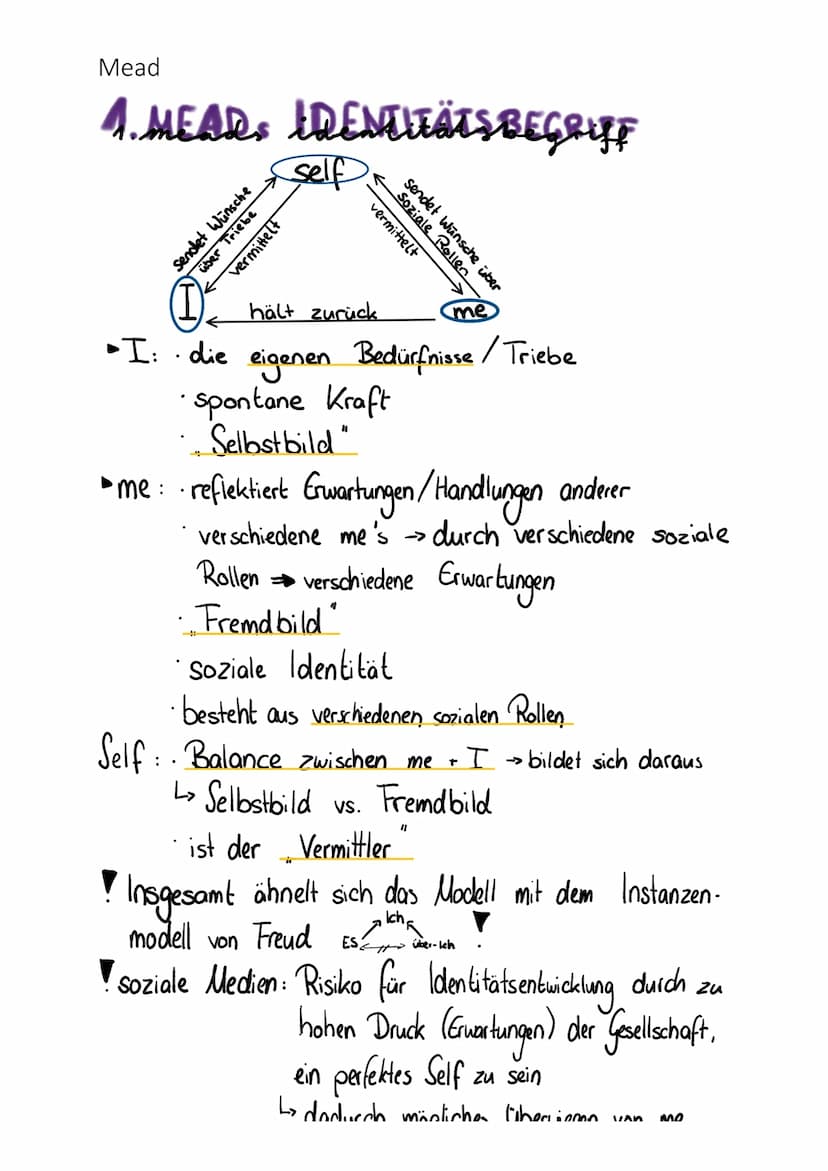 Mead
1. MEADs IDENTITÄTSBEGRIFF
1. meads identitätsbegriff
self
sendet Wünsche
über Triebe
vermittelt
sendet Wünsche über
soziale Rollen
vermittelt
I
hält zurück
me
▸I: · die eigenen Bedürfnisse / Triebe
· spontane Kraft
· „Selbstbild"
▸me: · reflektiert Erwartungen/Handlungen anderer
· verschiedene me's → durch verschiedene soziale
Rollen ⇒ verschiedene Erwartungen
· „Fremdbild"
· soziale Identität
· besteht aus verschiedenen sozialen Rollen
Self: · Balance zwischen me + I → bildet sich daraus
↳ Selbstbild vs. Fremdbild
· ist der „Vermittler"
! Insgesamt ähnelt sich das Modell mit dem Instanzen-
modell von Freud
Ich
ES
über-Ich
!
! soziale Medien: Risiko für Identitätsentwicklung durch zu
hohen Druck (Erwartungen) der Gesellschaft,
ein perfektes Self zu sein
↳ dadurch von me